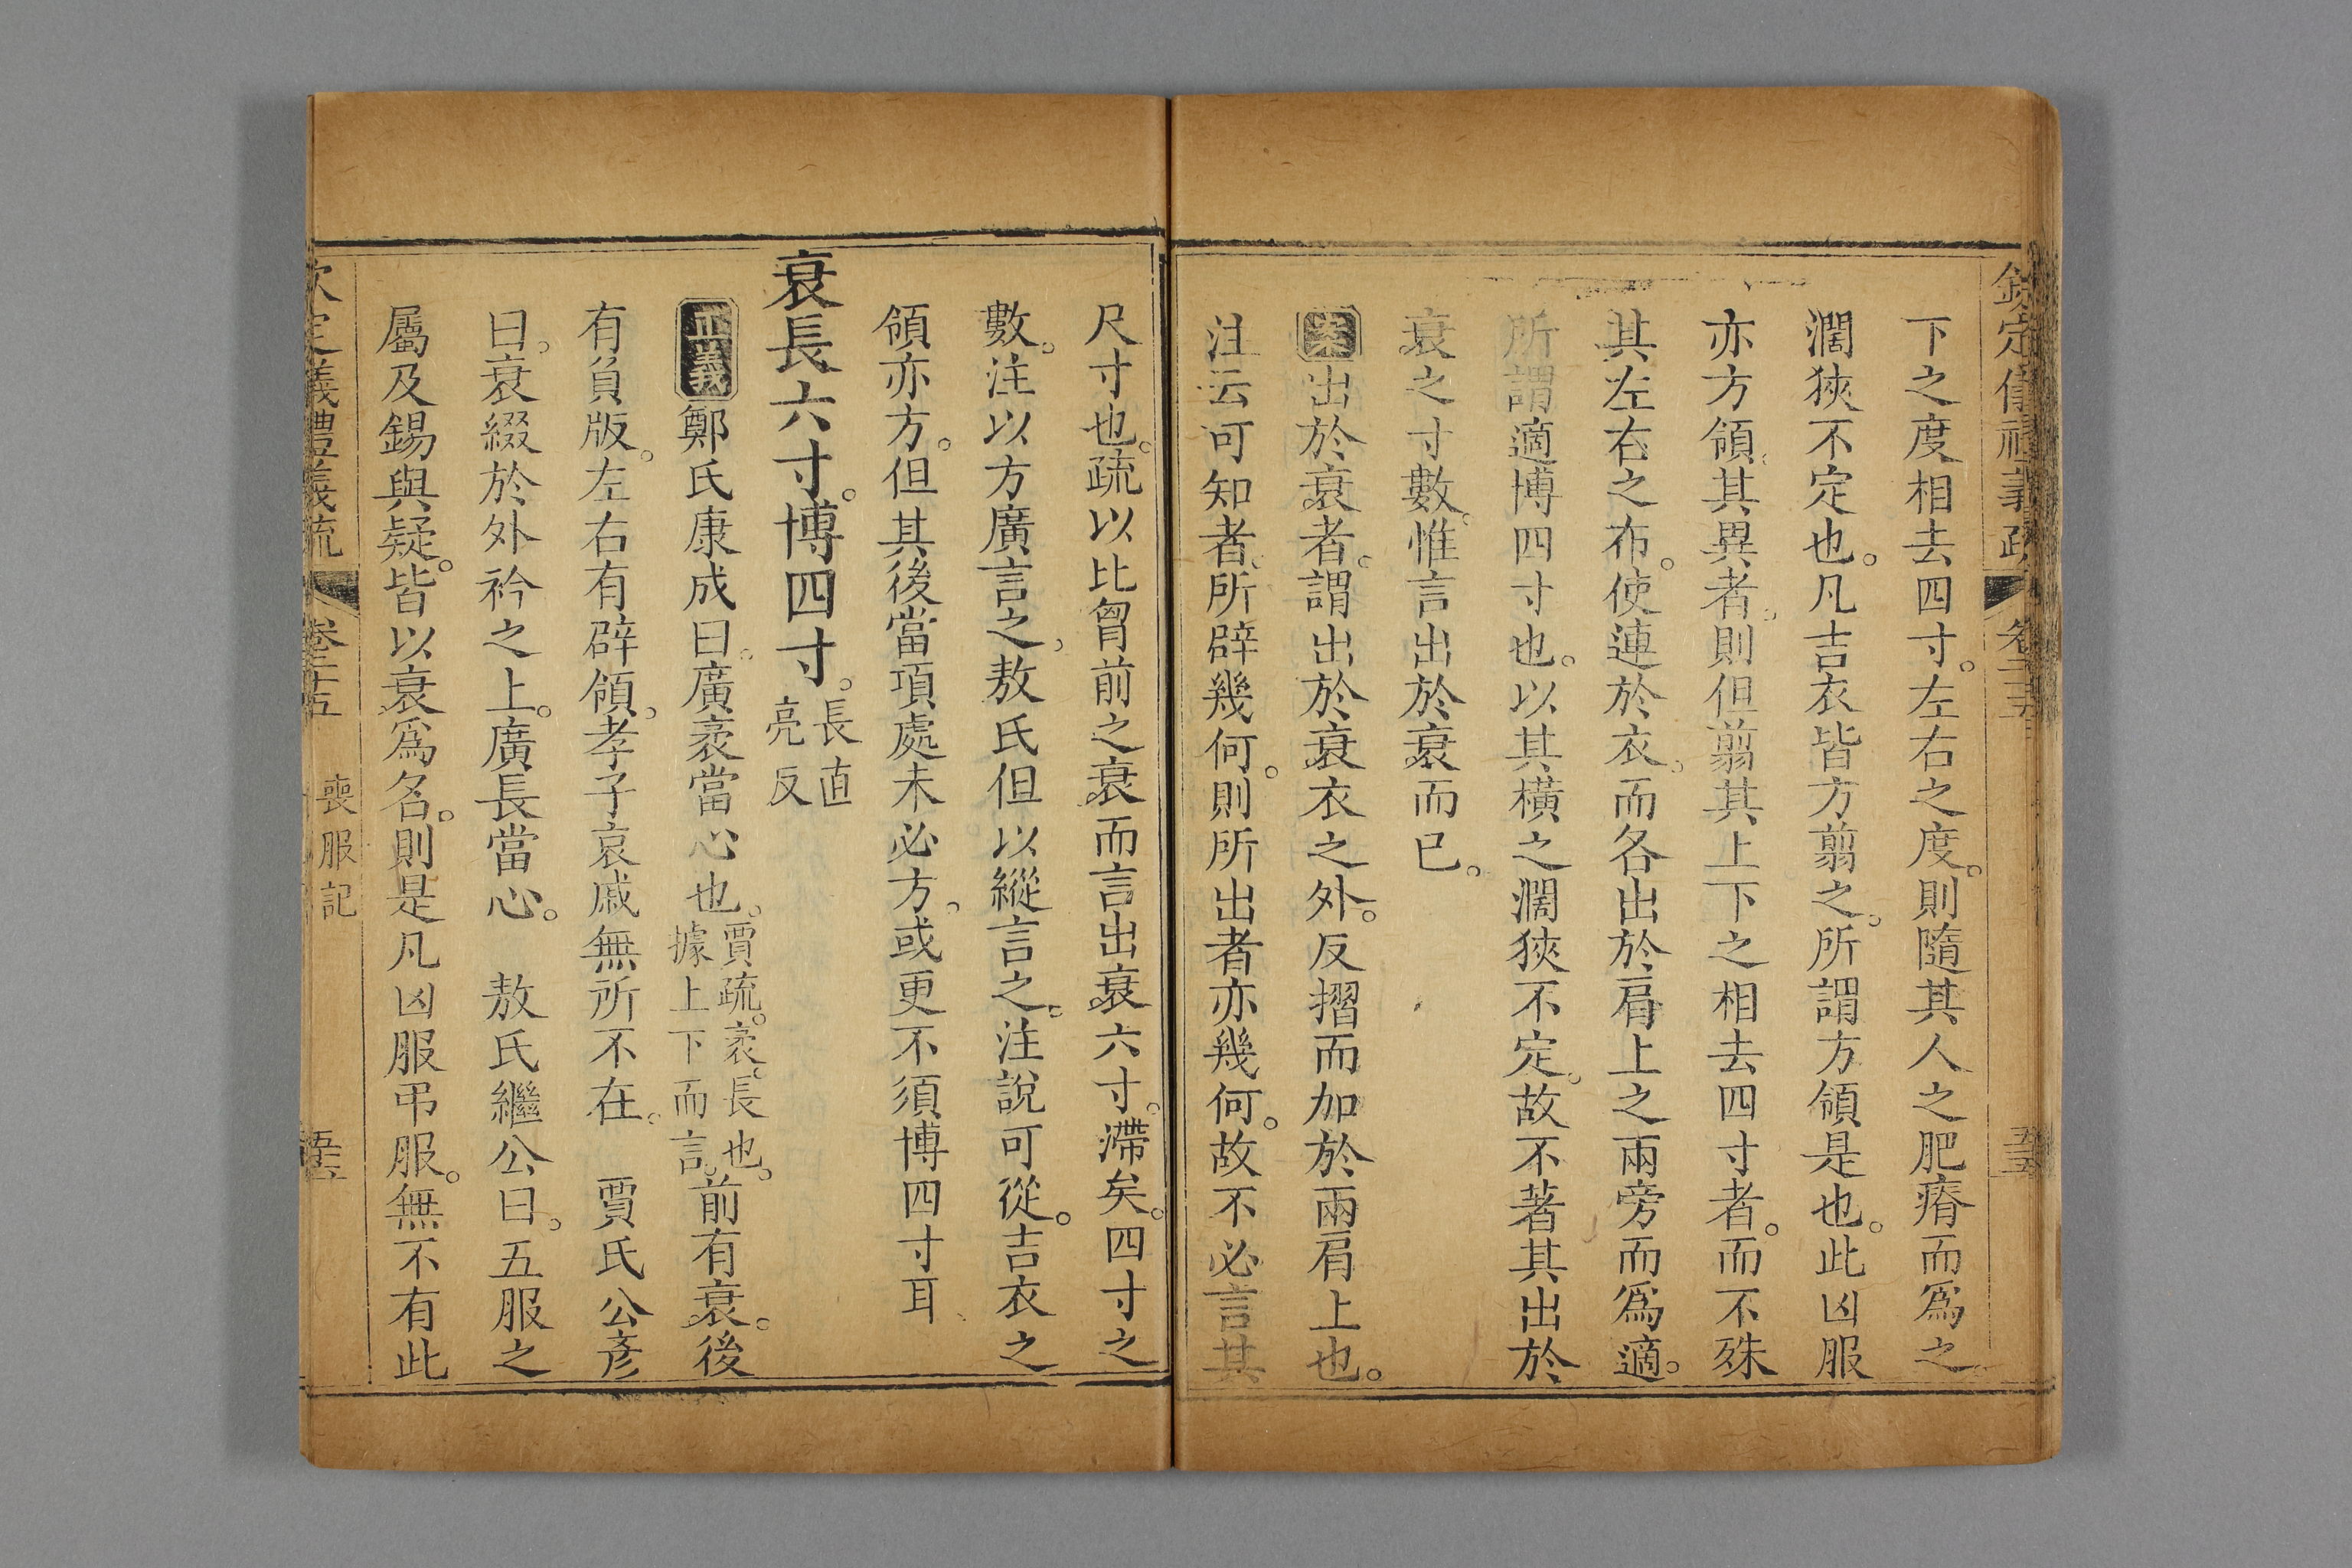 欽定儀禮義疏 卷二十五 五十五
下之度相去四寸。左右之度。則隨其人之肥瘠而爲之
濶狹不定也。凡吉衣皆方翦之。所謂方領是也。此凶服
亦方領。其異者。則但翦其上下之相去四寸者。而不殊
其左右之布。使連於衣。而各出於肩上之兩旁而爲適。
所謂適博四寸也。以其橫之濶狹不定。故不著其出於
衰之寸數。惟言出於衰而已。
案出於衰者。謂出於衰衣之外。反摺而加於兩肩上也。
注云可知者。所辟幾何。則所出者亦幾何。故不必言其
尺寸也。疏以比胷前之衰而言出衰六寸。滯矣。四寸之
數。注以方廣言之。敖氏但以縱言之。注說可從。吉衣之
領亦方。但其後當項處未必方。或更不須博四寸耳
衰長六寸。博四寸。長直亮反
正義鄭氏康成曰。廣袤當心也。賈疏。袤。長也。據上下而言。前有衰。後
有負版。左右有辟領。孝子哀戚無所不在。 賈氏公彥
曰。衰綴於外衿之上。廣長當心。 敖氏繼公曰。五服之
屬及錫與疑。皆以衰爲名。則是凡凶服弔服。無不有此
欽定儀禮義疏 卷二十五 喪服記